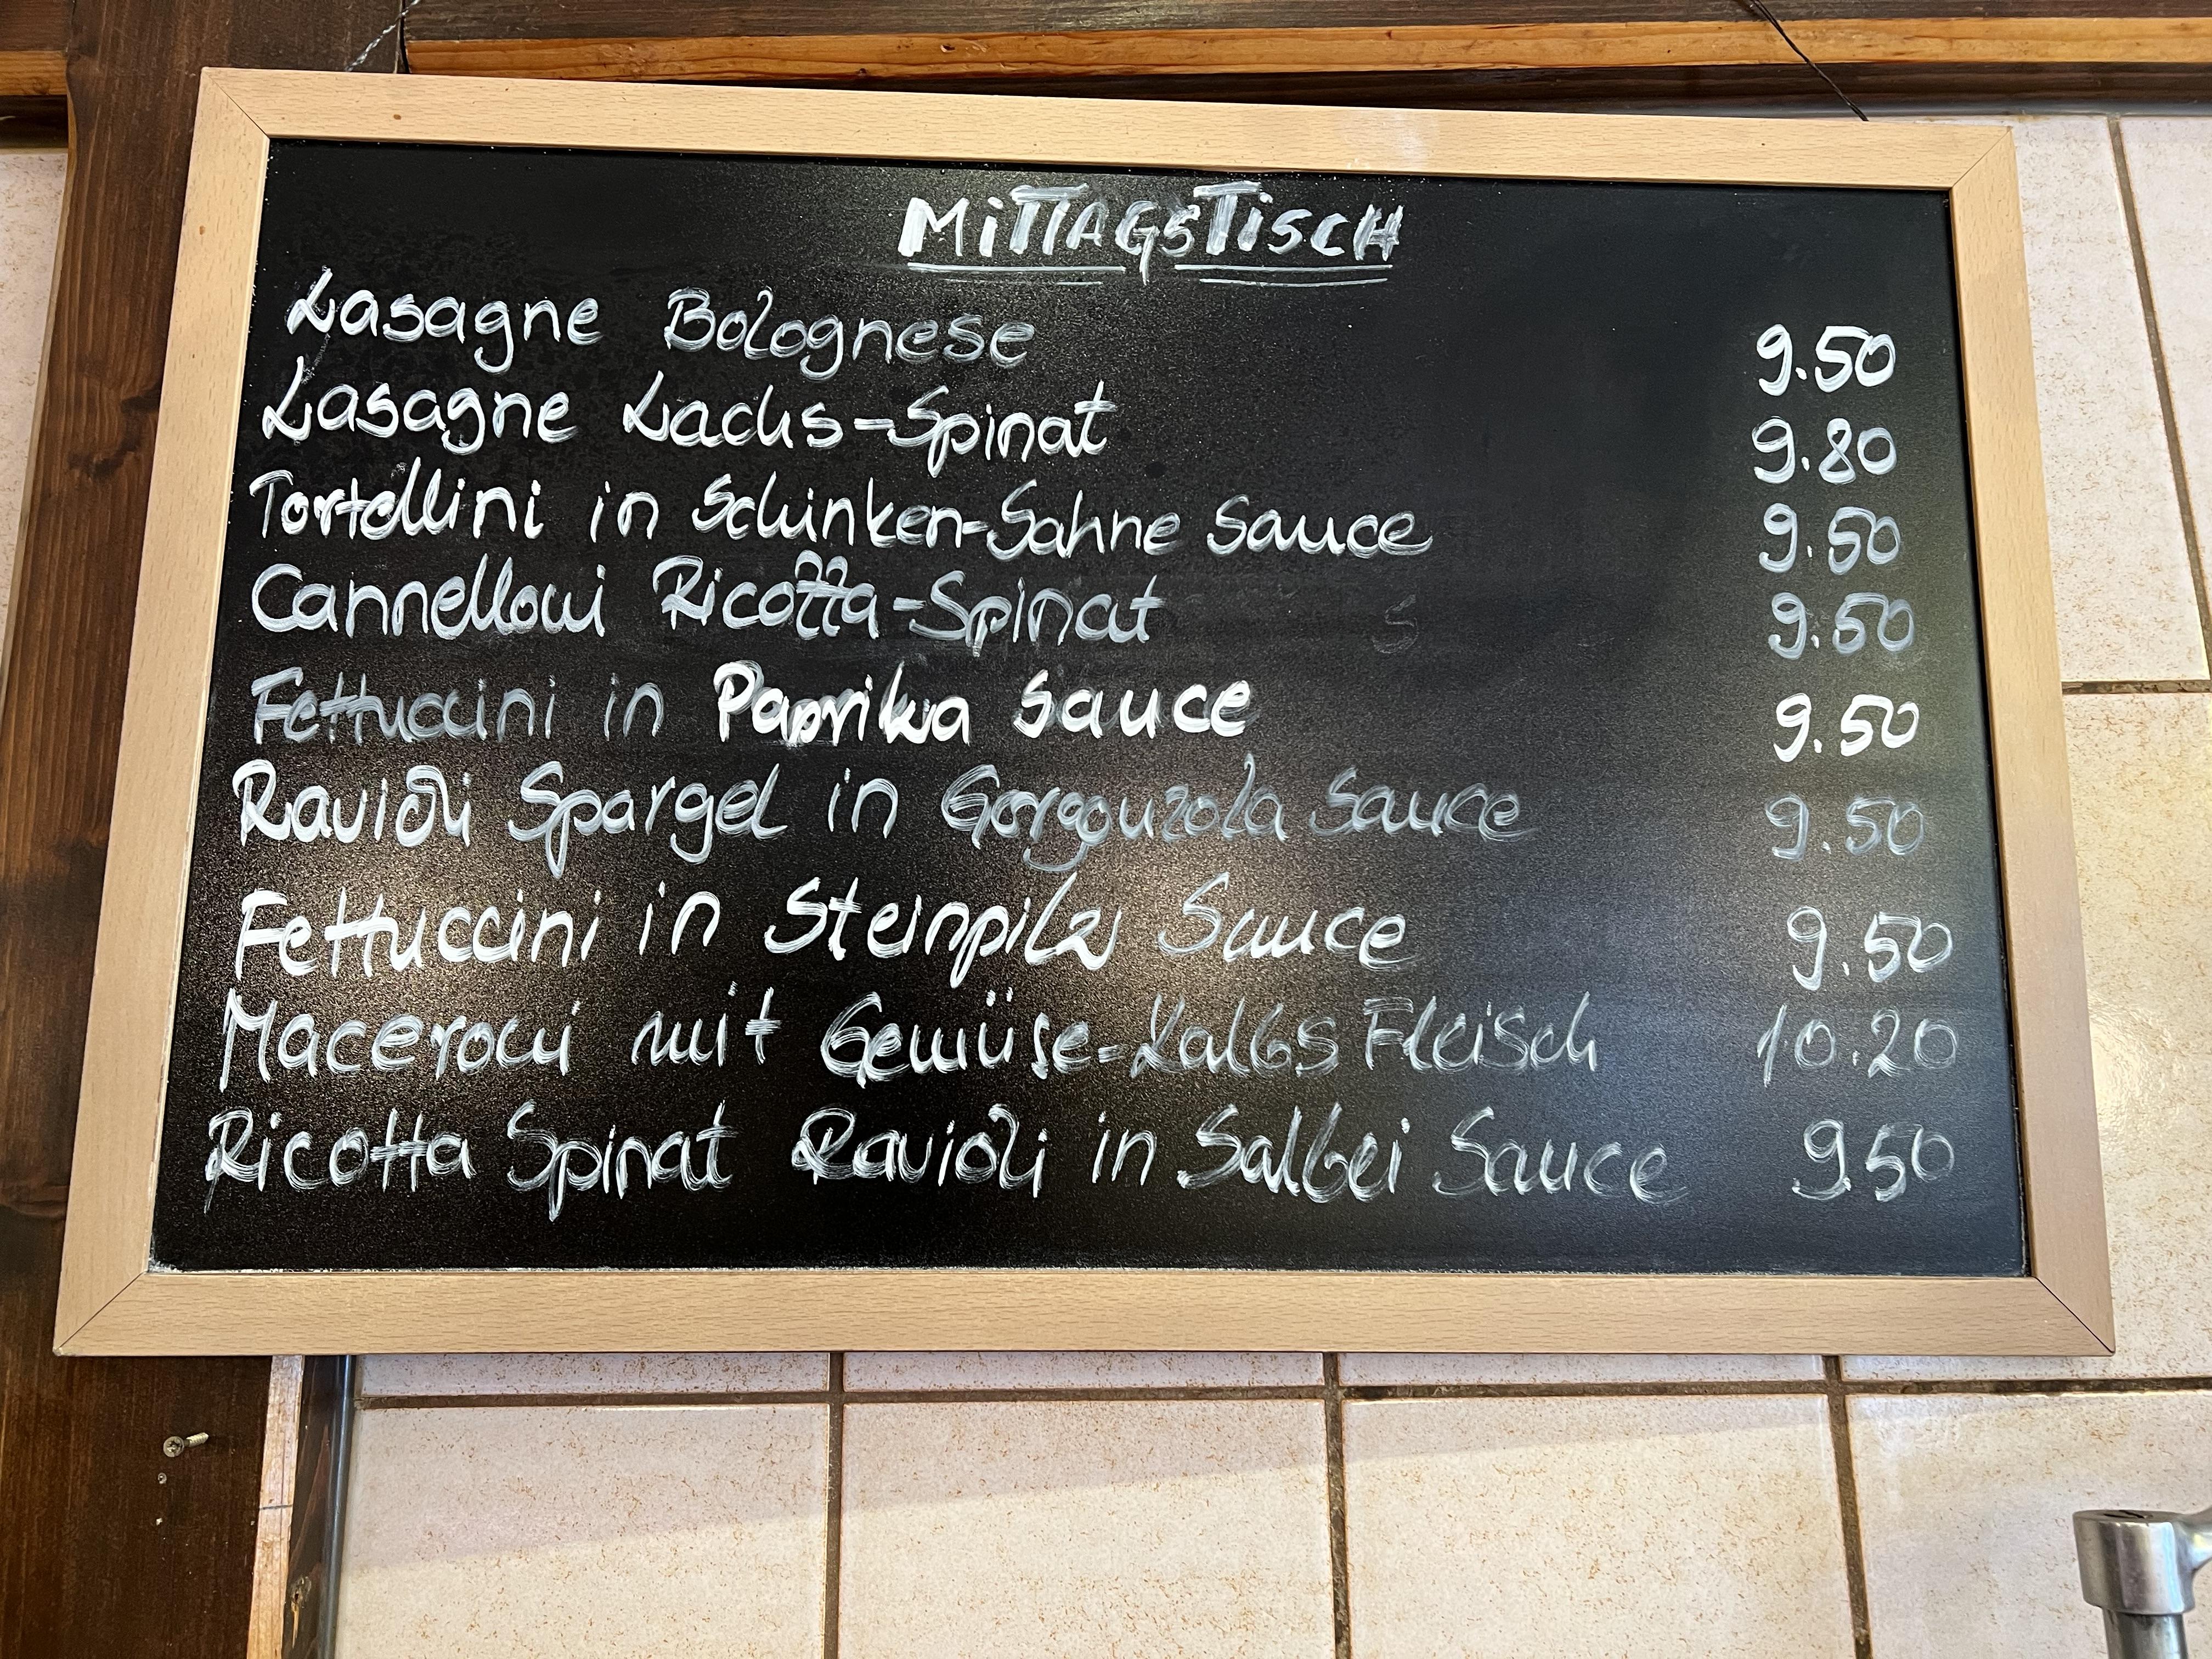 MITTAGSTISCH
Lasagne Bolognese 9.50
Lasagne Lachs-Spinat 9.80
Tortellini in Schinken-Sahne Sauce 9.50
Cannelloni Ricotta-Spinat 9.50
Fettuccini in Paprika Sauce 9.50
Ravioli Spargel in Gorgonzola Sauce 9.50
Fettuccini in Steinpilz Sauce 9.50
Maceroni mit Gemüse-Kalbs Fleisch 10.20
Ricotta Spinat Ravioli in Salbei Sauce 9.50